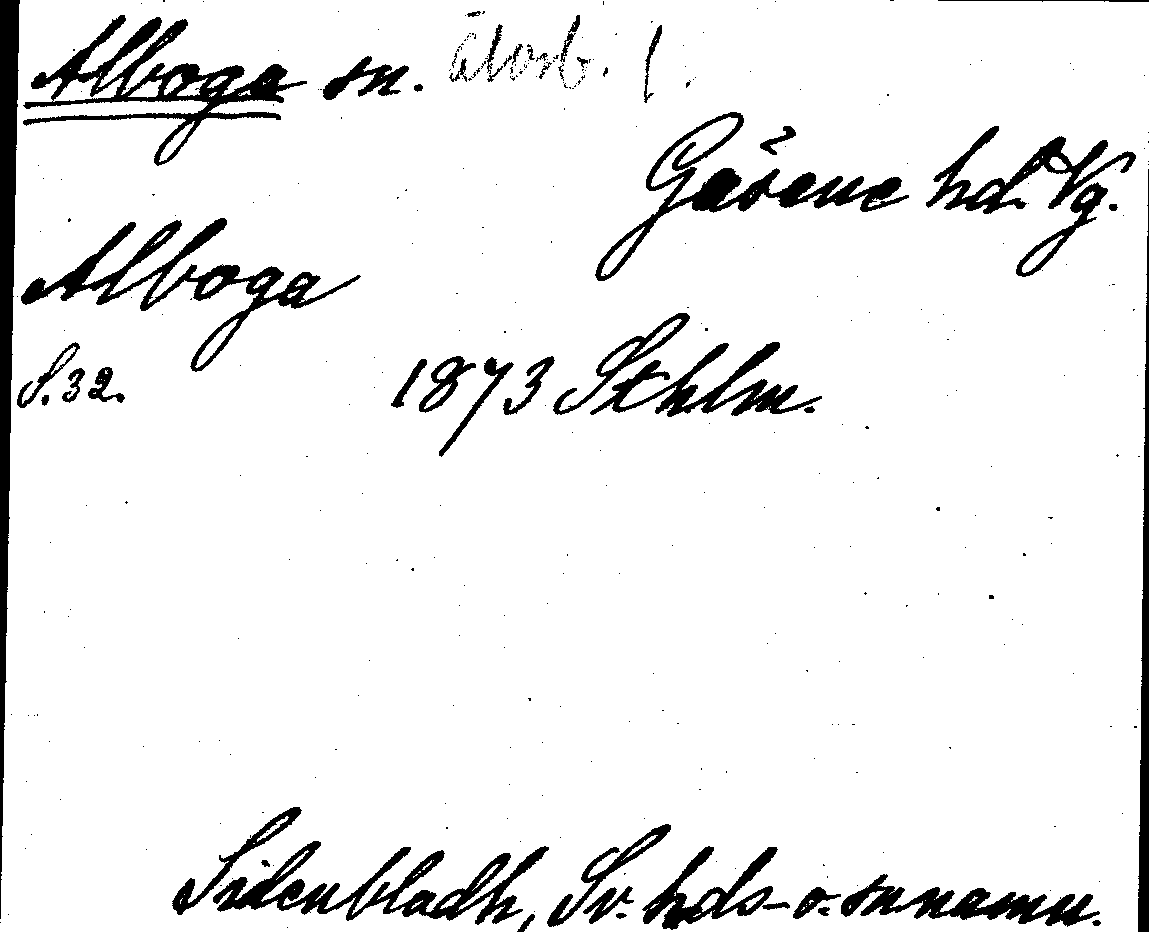 Alboga sn. älvsb. l.
Gäsene hd. Vg.
Alboga
S. 32. 1873 Sthlm.
Sidenbladh, Sv. hds- o. snnamn.